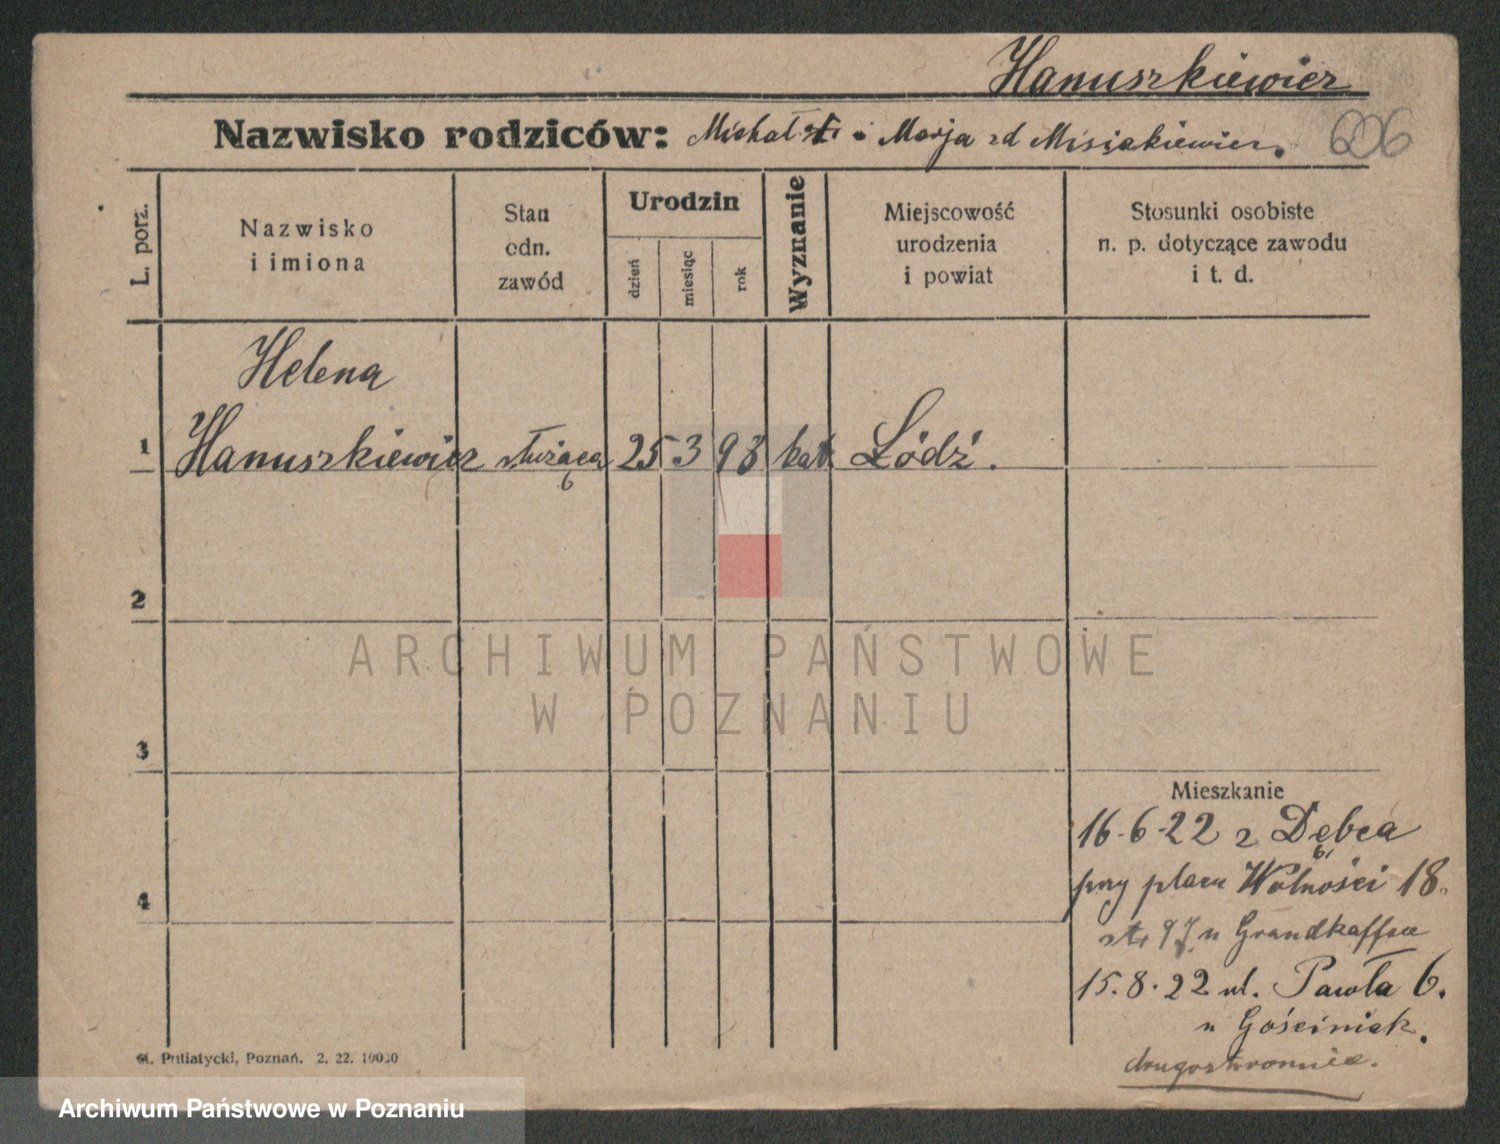 Hanuszkiewicz
Nazwisko rodziców: Michał i Marja zd Misiakiewicz. 606
L. porz.
Nazwisko
i imiona
Stan
odn.
zawód
Urodzin
dzień
miesiąc
rok
Wyznanie
Miejscowość
urodzenia
i powiat
Stosunki osobiste
n. p. dotyczące zawodu
i t. d.
Helena
1 Hanuszkiewicz służąca 25 3 98 kat. Łódź.
6
2
ARCHIWUM PAŃSTWOWE
W POZNANIU
3
Mieszkanie
16.6.22 z Dębca
przy placu Wolności 18.
4
u Grandkaffee
15.8.22 ul. Pawła 6.
u Gościniak.
drugostronnie.
M. Putiatycki, Poznań. 2. 22. 10000
Archiwum Państwowe w Poznaniu